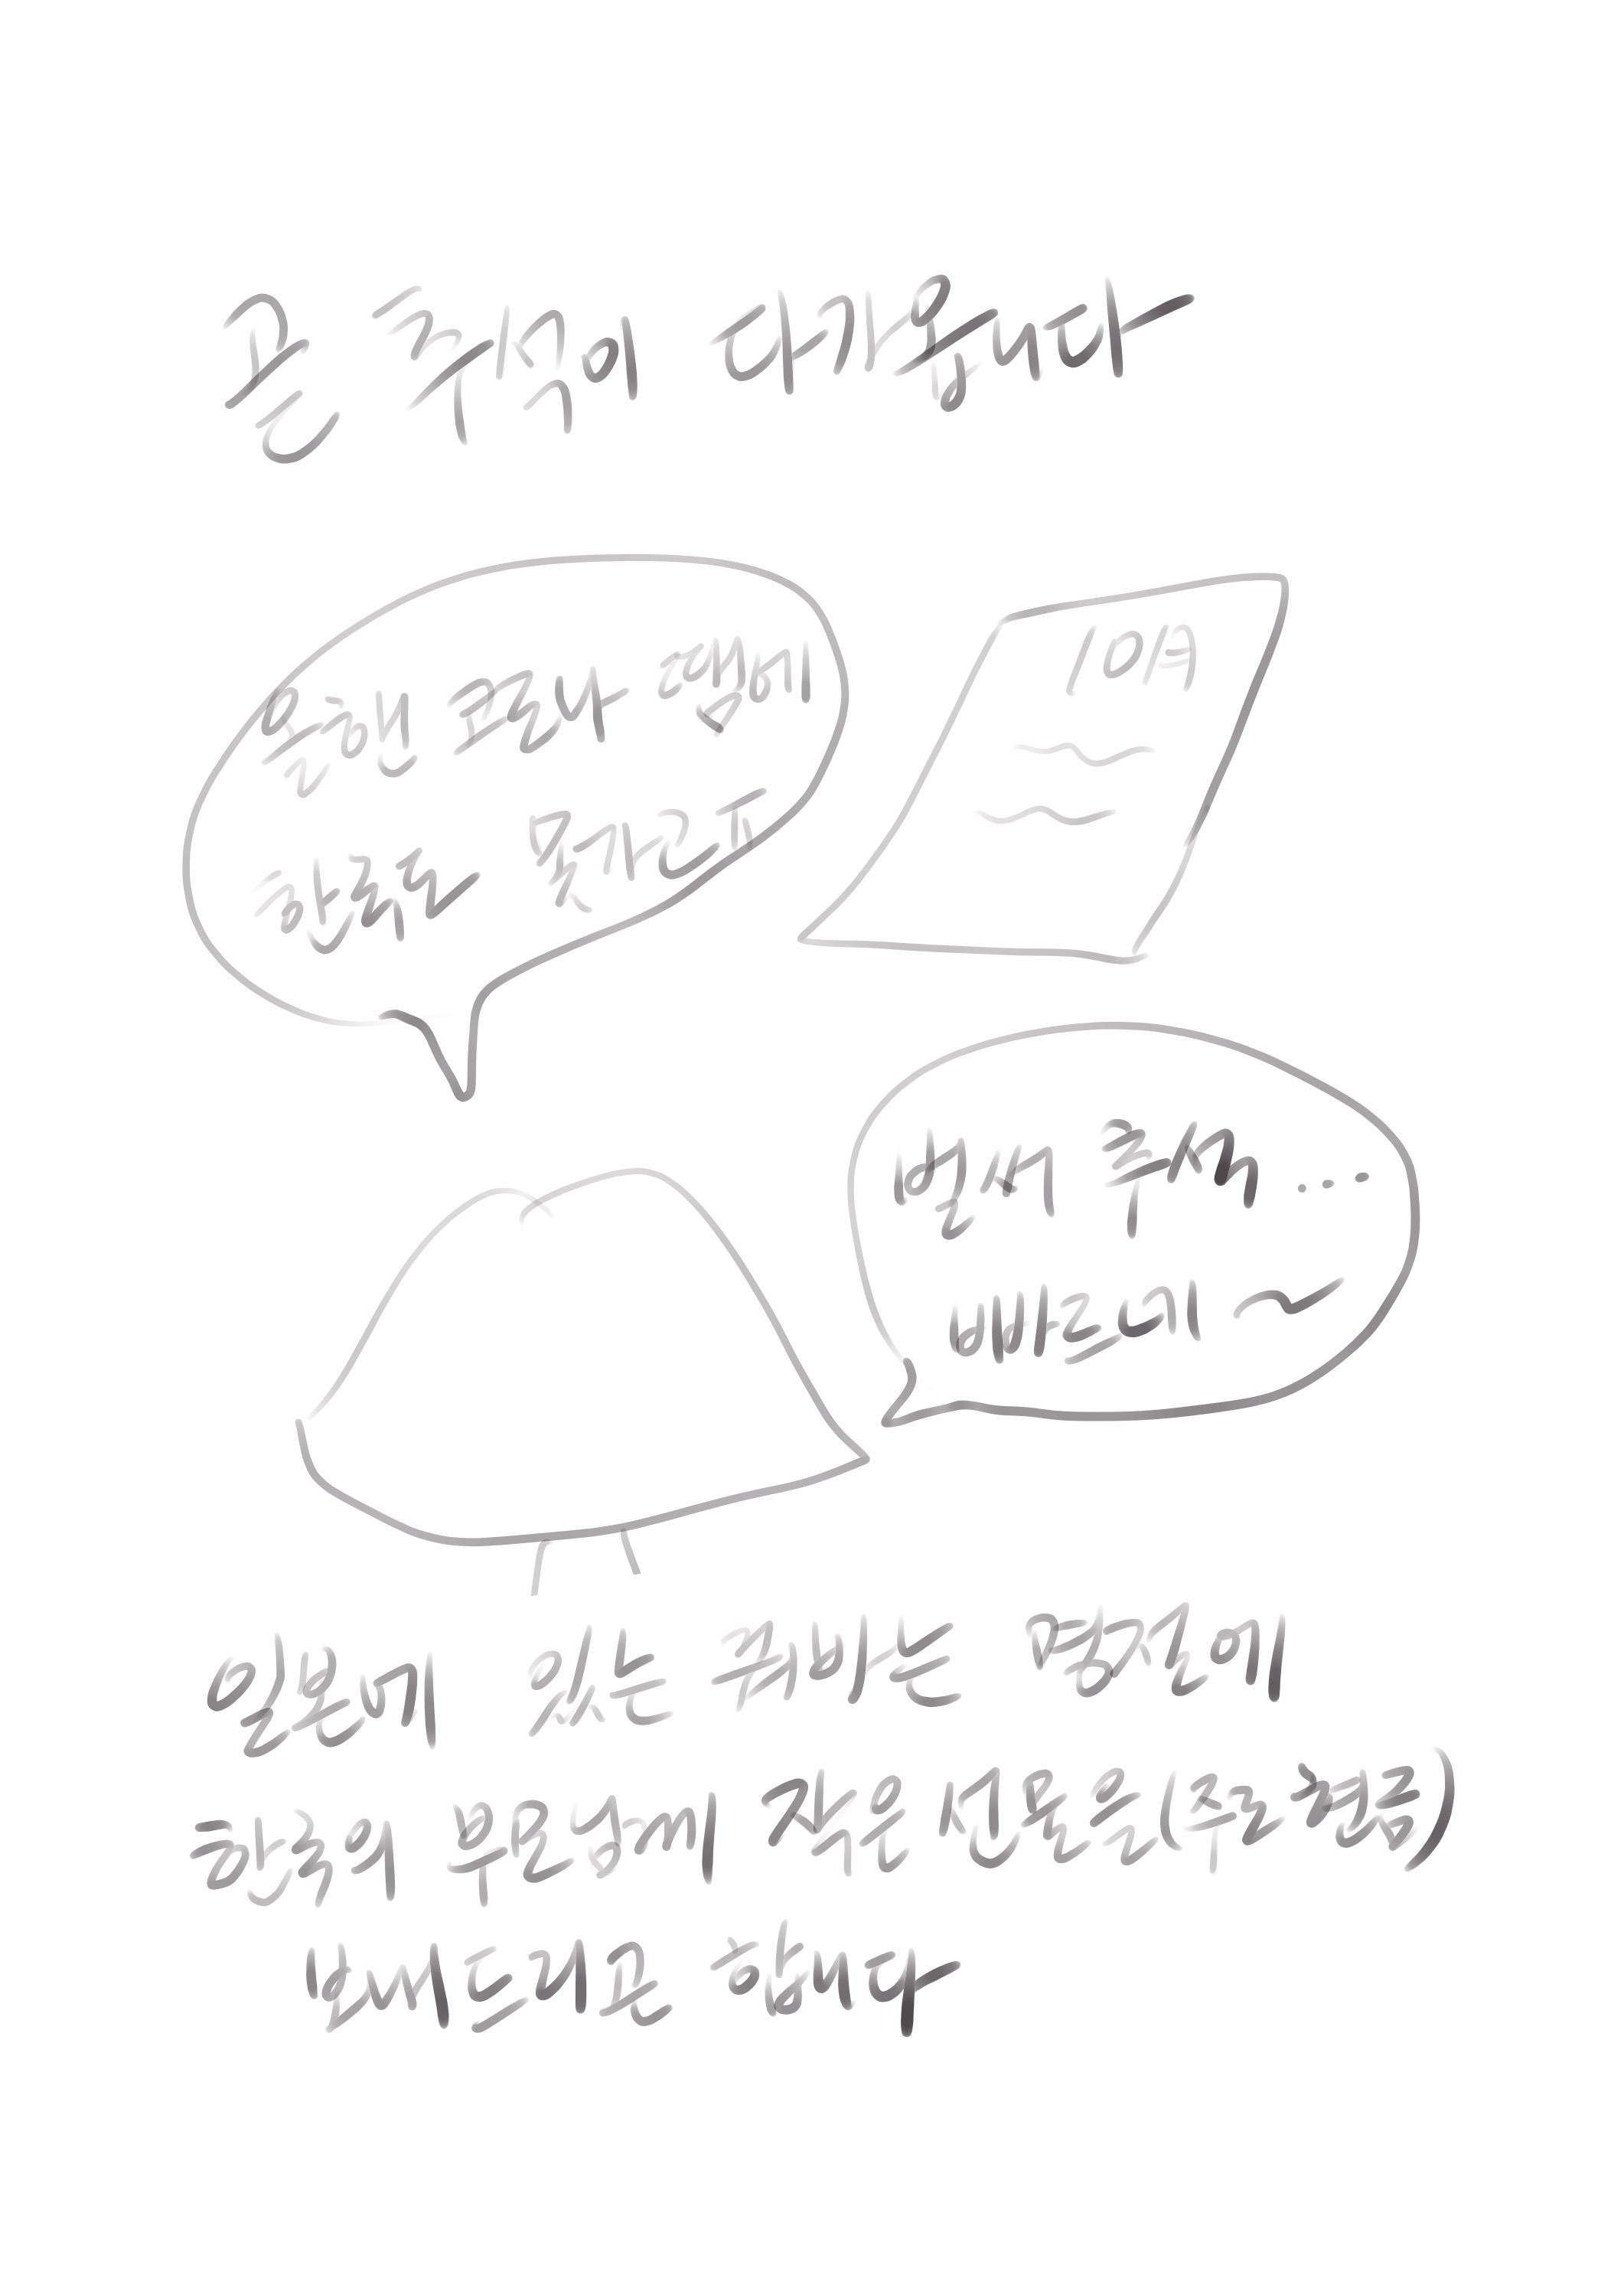 곧 추석이 다가옵니다
올핸 코로나 땜에
한국도 못가고ㅠ
10月
벌써 추석...
빠르네~
일본에 있는 국밥는 명절에
한국의 부모님께 작은 선물을(주로 현금)
보내드리곤 합니다